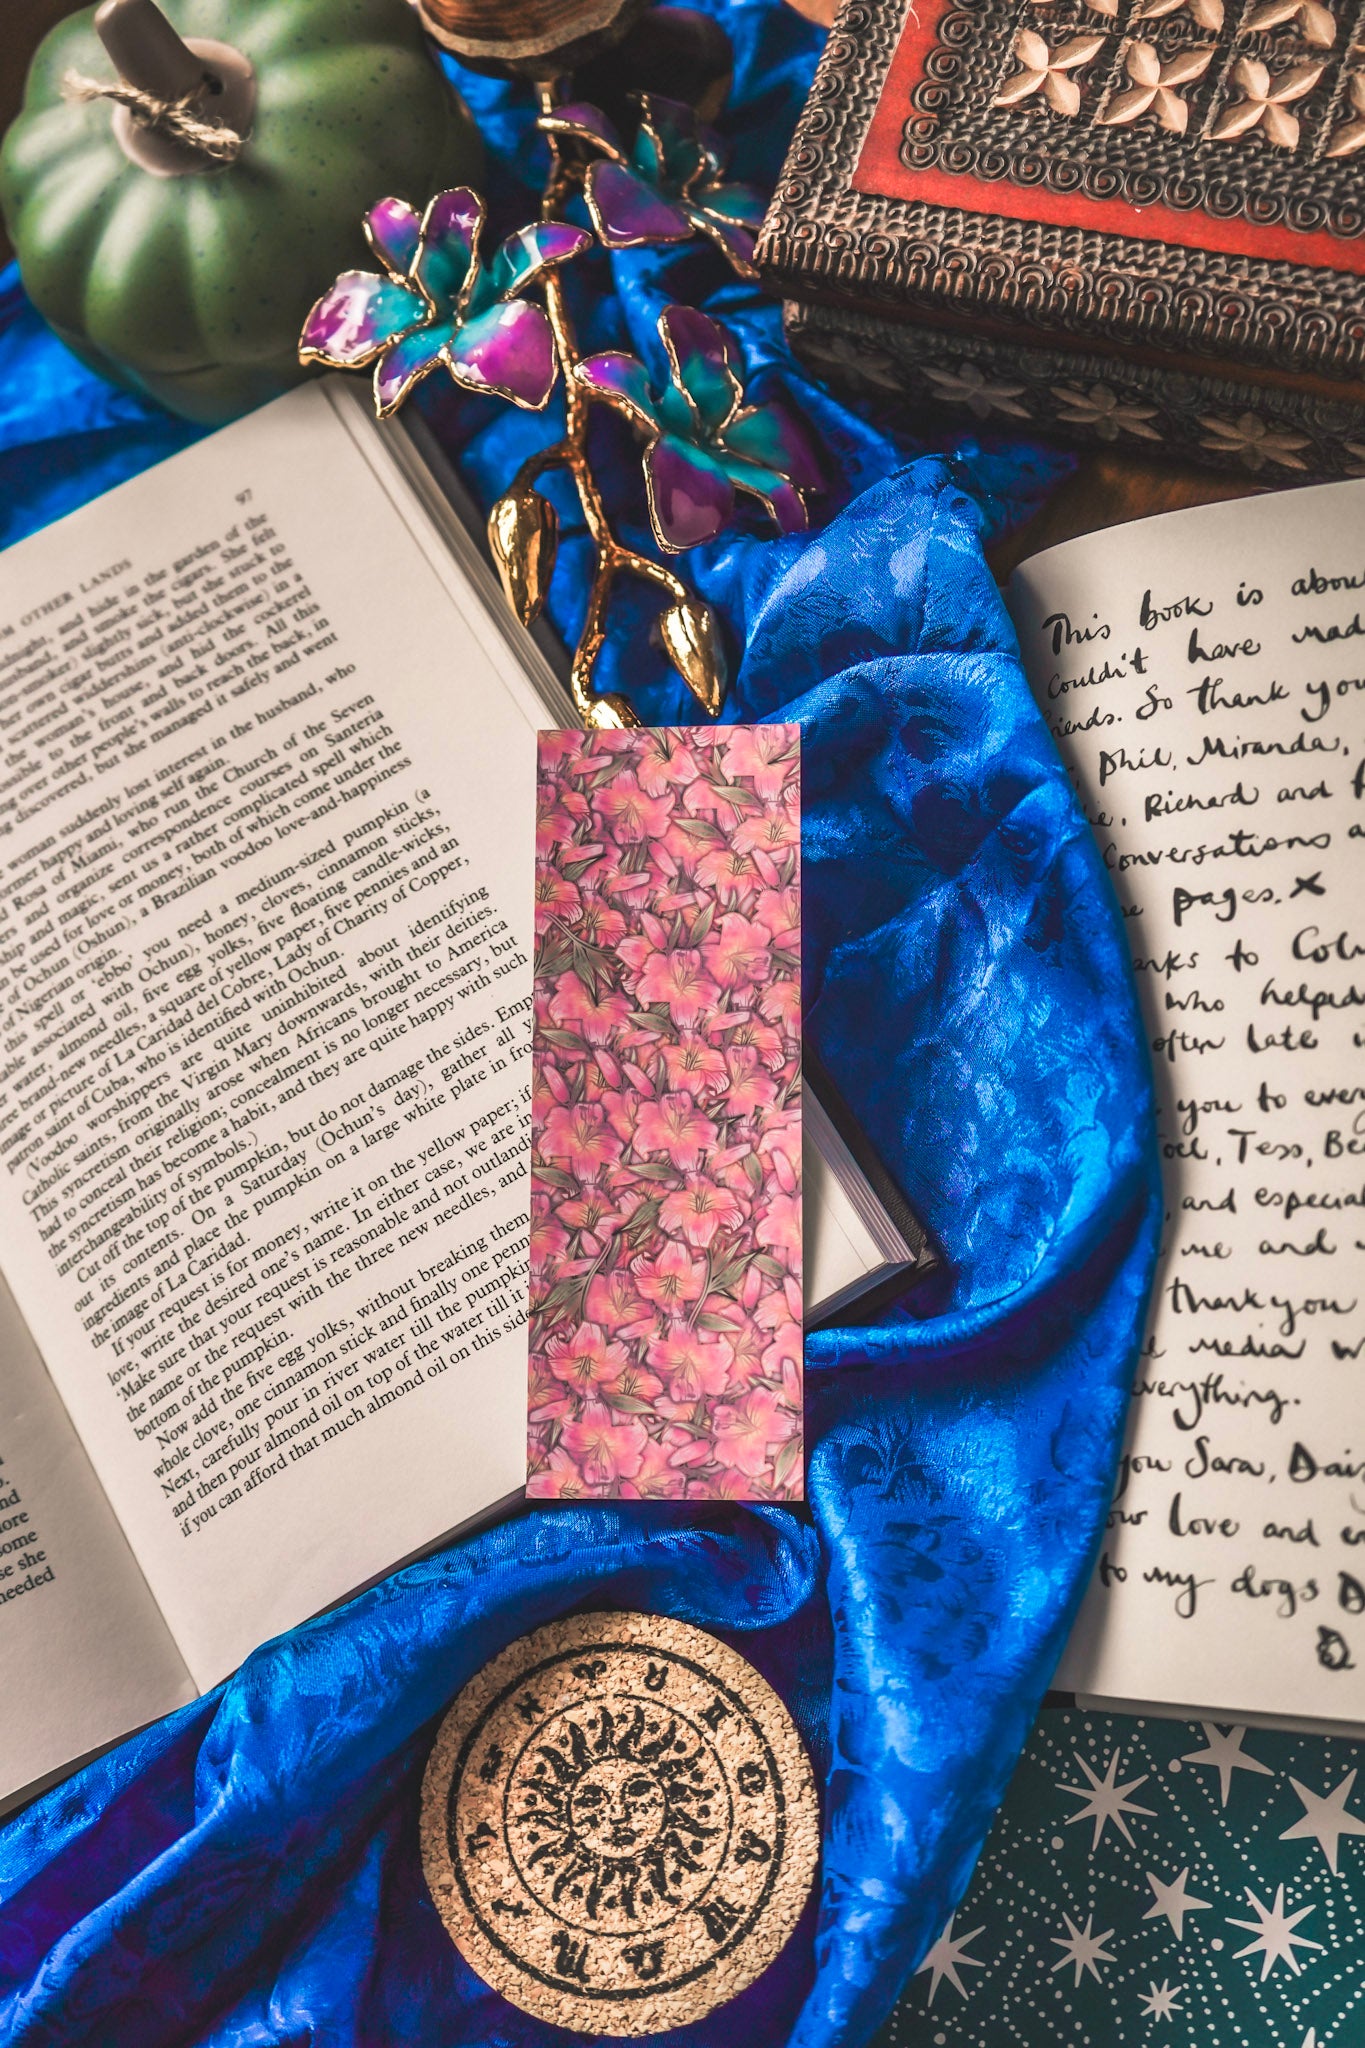 97
OTHER LANDS
and hide in the garden of the
and smoke the cigars. She felt
slightly sick, but she stuck to
her own cigar butts and added them to the
scattered widdershins (anti-clockwise) in a
the woman's house, and hid the cockerel
to the front and back doors. All this
over other people's walls to reach the back, in
discovered, but she managed it safely and went
woman suddenly lost interest in the husband, who
former happy and loving self again.
Rosa of Miami, who run the Church of the Seven
and organize correspondence courses on Santeria
and magic, sent us a rather complicated spell which
be used for love or money, both of which come under the
of Ochun (Oshun), a Brazilian voodoo love-and-happiness
of Nigerian origin.
this spell or 'ebbo' you need a medium-sized pumpkin (a
associated with Ochun), honey, cloves, cinnamon sticks,
water, almond oil, five egg yolks, five floating candle-wicks,
brand-new needles, a square of yellow paper, five pennies and an
image or picture of La Caridad del Cobre, Lady of Charity of Copper,
patron saint of Cuba, who is identified with Ochun.
(Voodoo worshippers are quite uninhibited about identifying
Catholic saints, from the Virgin Mary downwards, with their deities.
This syncretism originally arose when Africans brought to America
had to conceal their religion; concealment is no longer necessary, but
the syncretism has become a habit, and they are quite happy with such
interchangeability of symbols.)
Cut off the top of the pumpkin, but do not damage the sides.
out its contents. On a Saturday (Ochun's day), gather all
ingredients and place the pumpkin on a large white plate in
the image of La Caridad.
If your request is for money, write it on the yellow paper; if
love, write the desired one's name. In either case, we are in
'Make sure that your request is reasonable and not
the name or the request with the three new needles, and
bottom of the pumpkin.
Now add the five egg yolks, without breaking them
whole clove, one cinnamon stick and finally one
Next, carefully pour in river water till the pumpkin
and then pour almond oil on top of the water till it
if you can afford that much almond oil on this side
and
some
she
needed
This book is
Couldn't have
So thank you
Phil, Miranda,
Richard and
Conversations
pages. X
to
who helped
often late
you to
Tess,
and
me and
thank you
media
everything.
you Sara,
love and
to my dogs